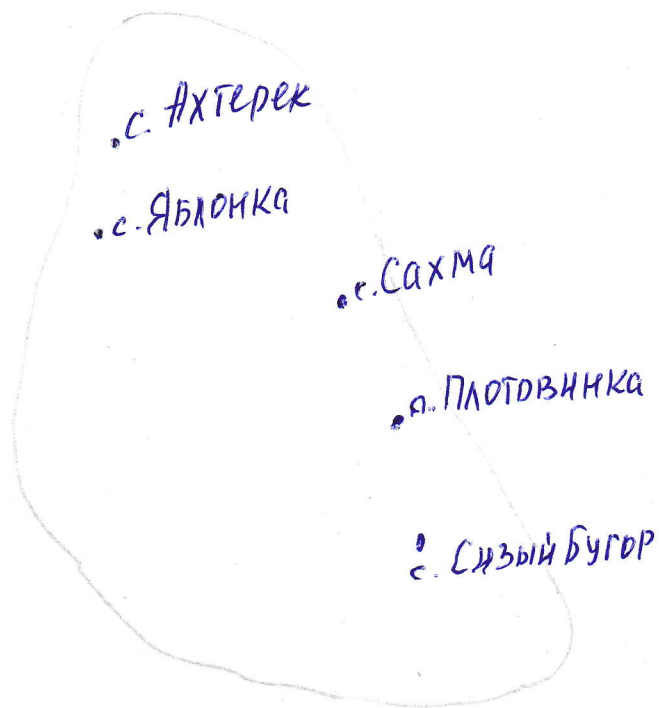 с. Ахтерек
с. Яблонка
с. Сахма
п. Плотовинка
с. Сизый Бугор